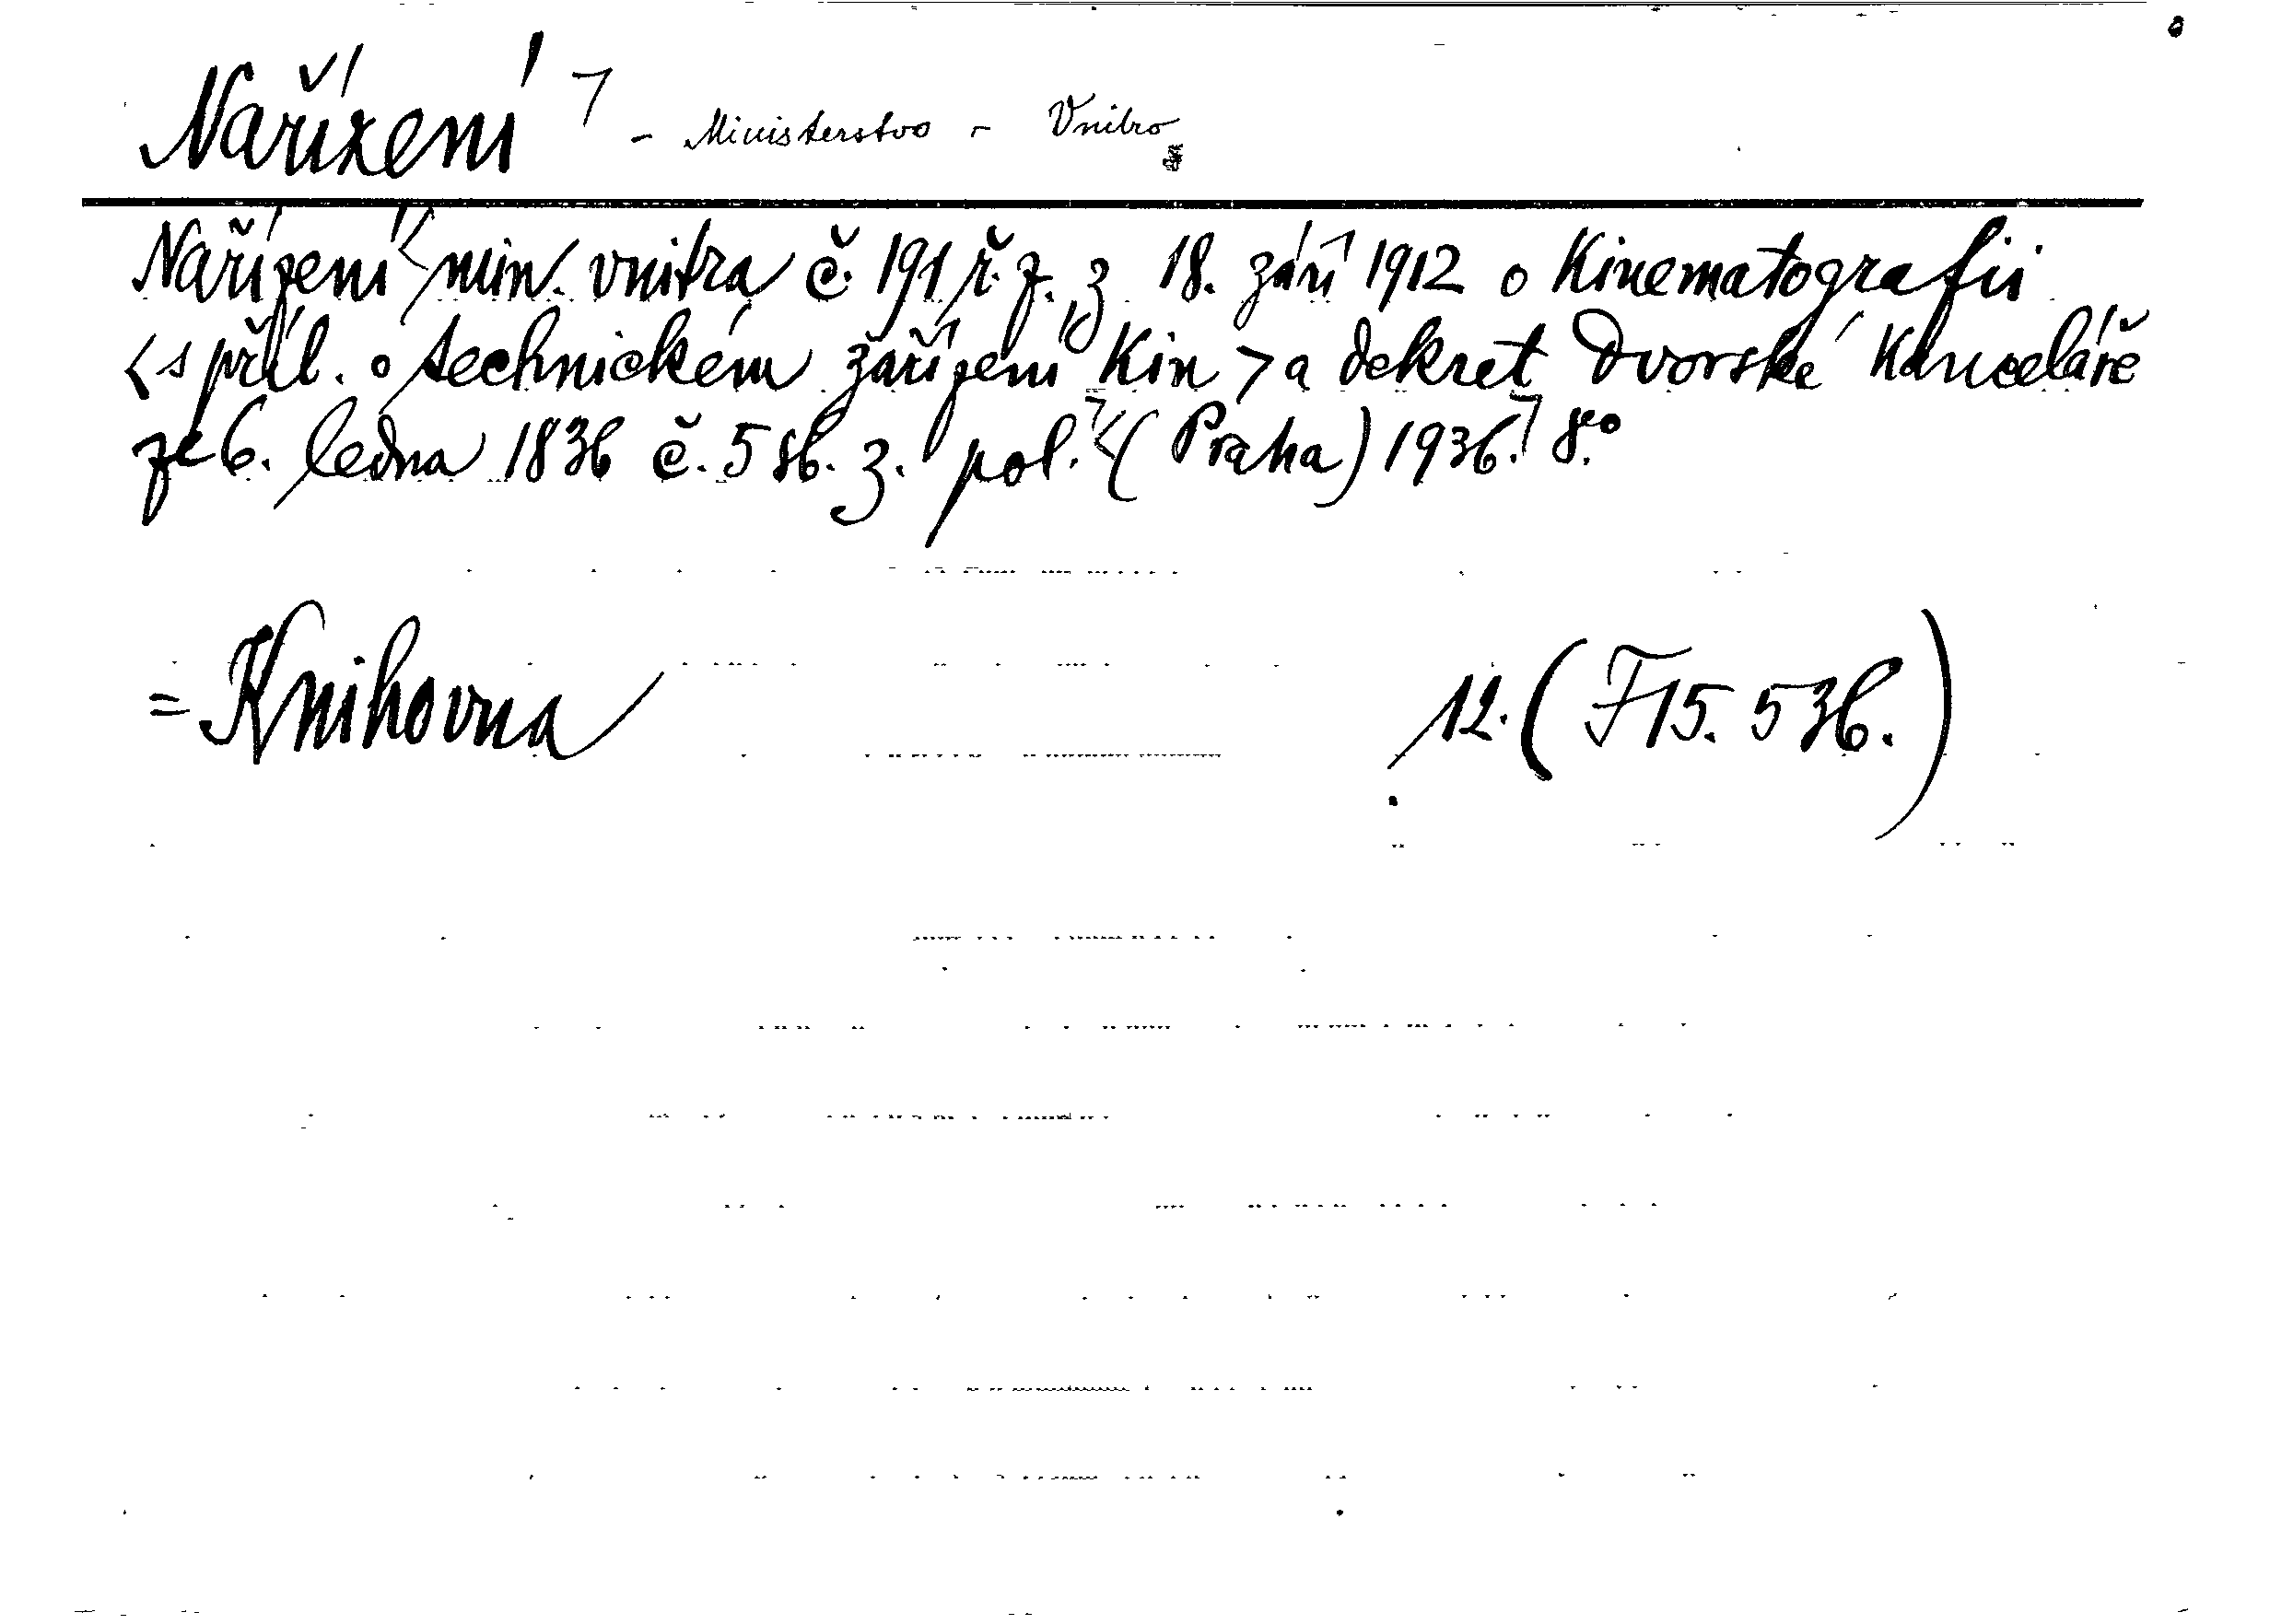 Nařízení - Ministerstvo - Vnitro
Nařízení min. vnitra č. 191 ř. z. z 18. září 1912 o Kinematografii
< s příl. o technickém zařízení Kin > a dekret Dvorské Kanceláře
ze 6. ledna 1836 č. 5 sb. z. pol. (Praha) 1936. 8°
= Knihovna 12. (F 15. 536.)